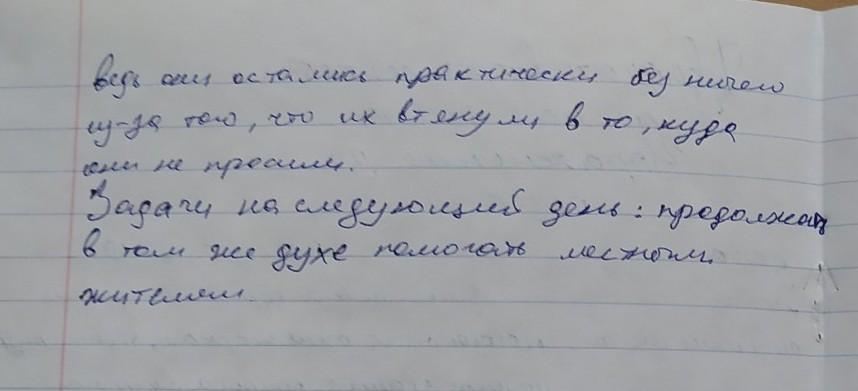 ведь они остались практически без ничего
из-за того, что их втянули в то, куда
они не просили.
Задачи на следующий день: продолжать
в том же духе помогать местным
жителям.